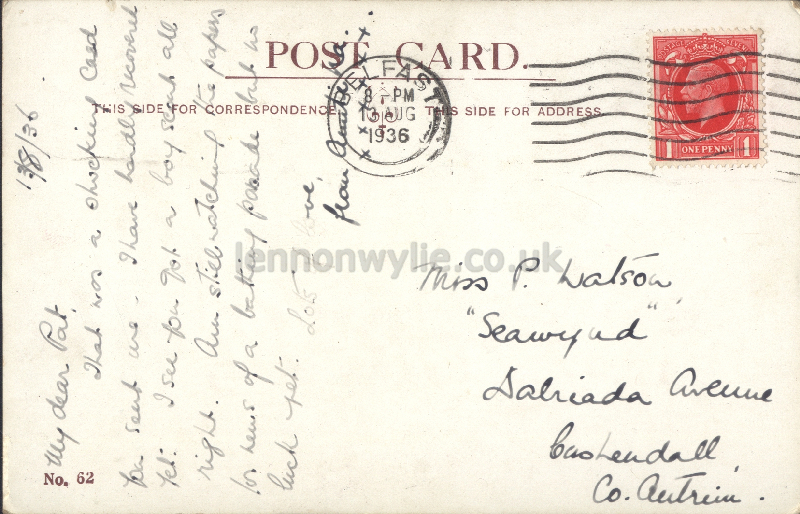 POST CARD.
THIS SIDE FOR CORRESPONDENCE
THIS SIDE FOR ADDRESS
BELFAST
8 PM
13 AUG
1936
POSTAGE REVENUE
1 ONE PENNY 1
13/8/36
My dear Pat,
That was a shocking card
you sent me - I have hardly recovered
yet. I see you got a boy scout all
right. Am still watching the papers
for news of a bathing parade but no
luck yet. Lots of love,
from
x x x x x x
Miss P. Watson,
"Seawynd",
Dalriada Avenue
Cushendall,
Co. Antrim.
No. 62
lennonwylie.co.uk